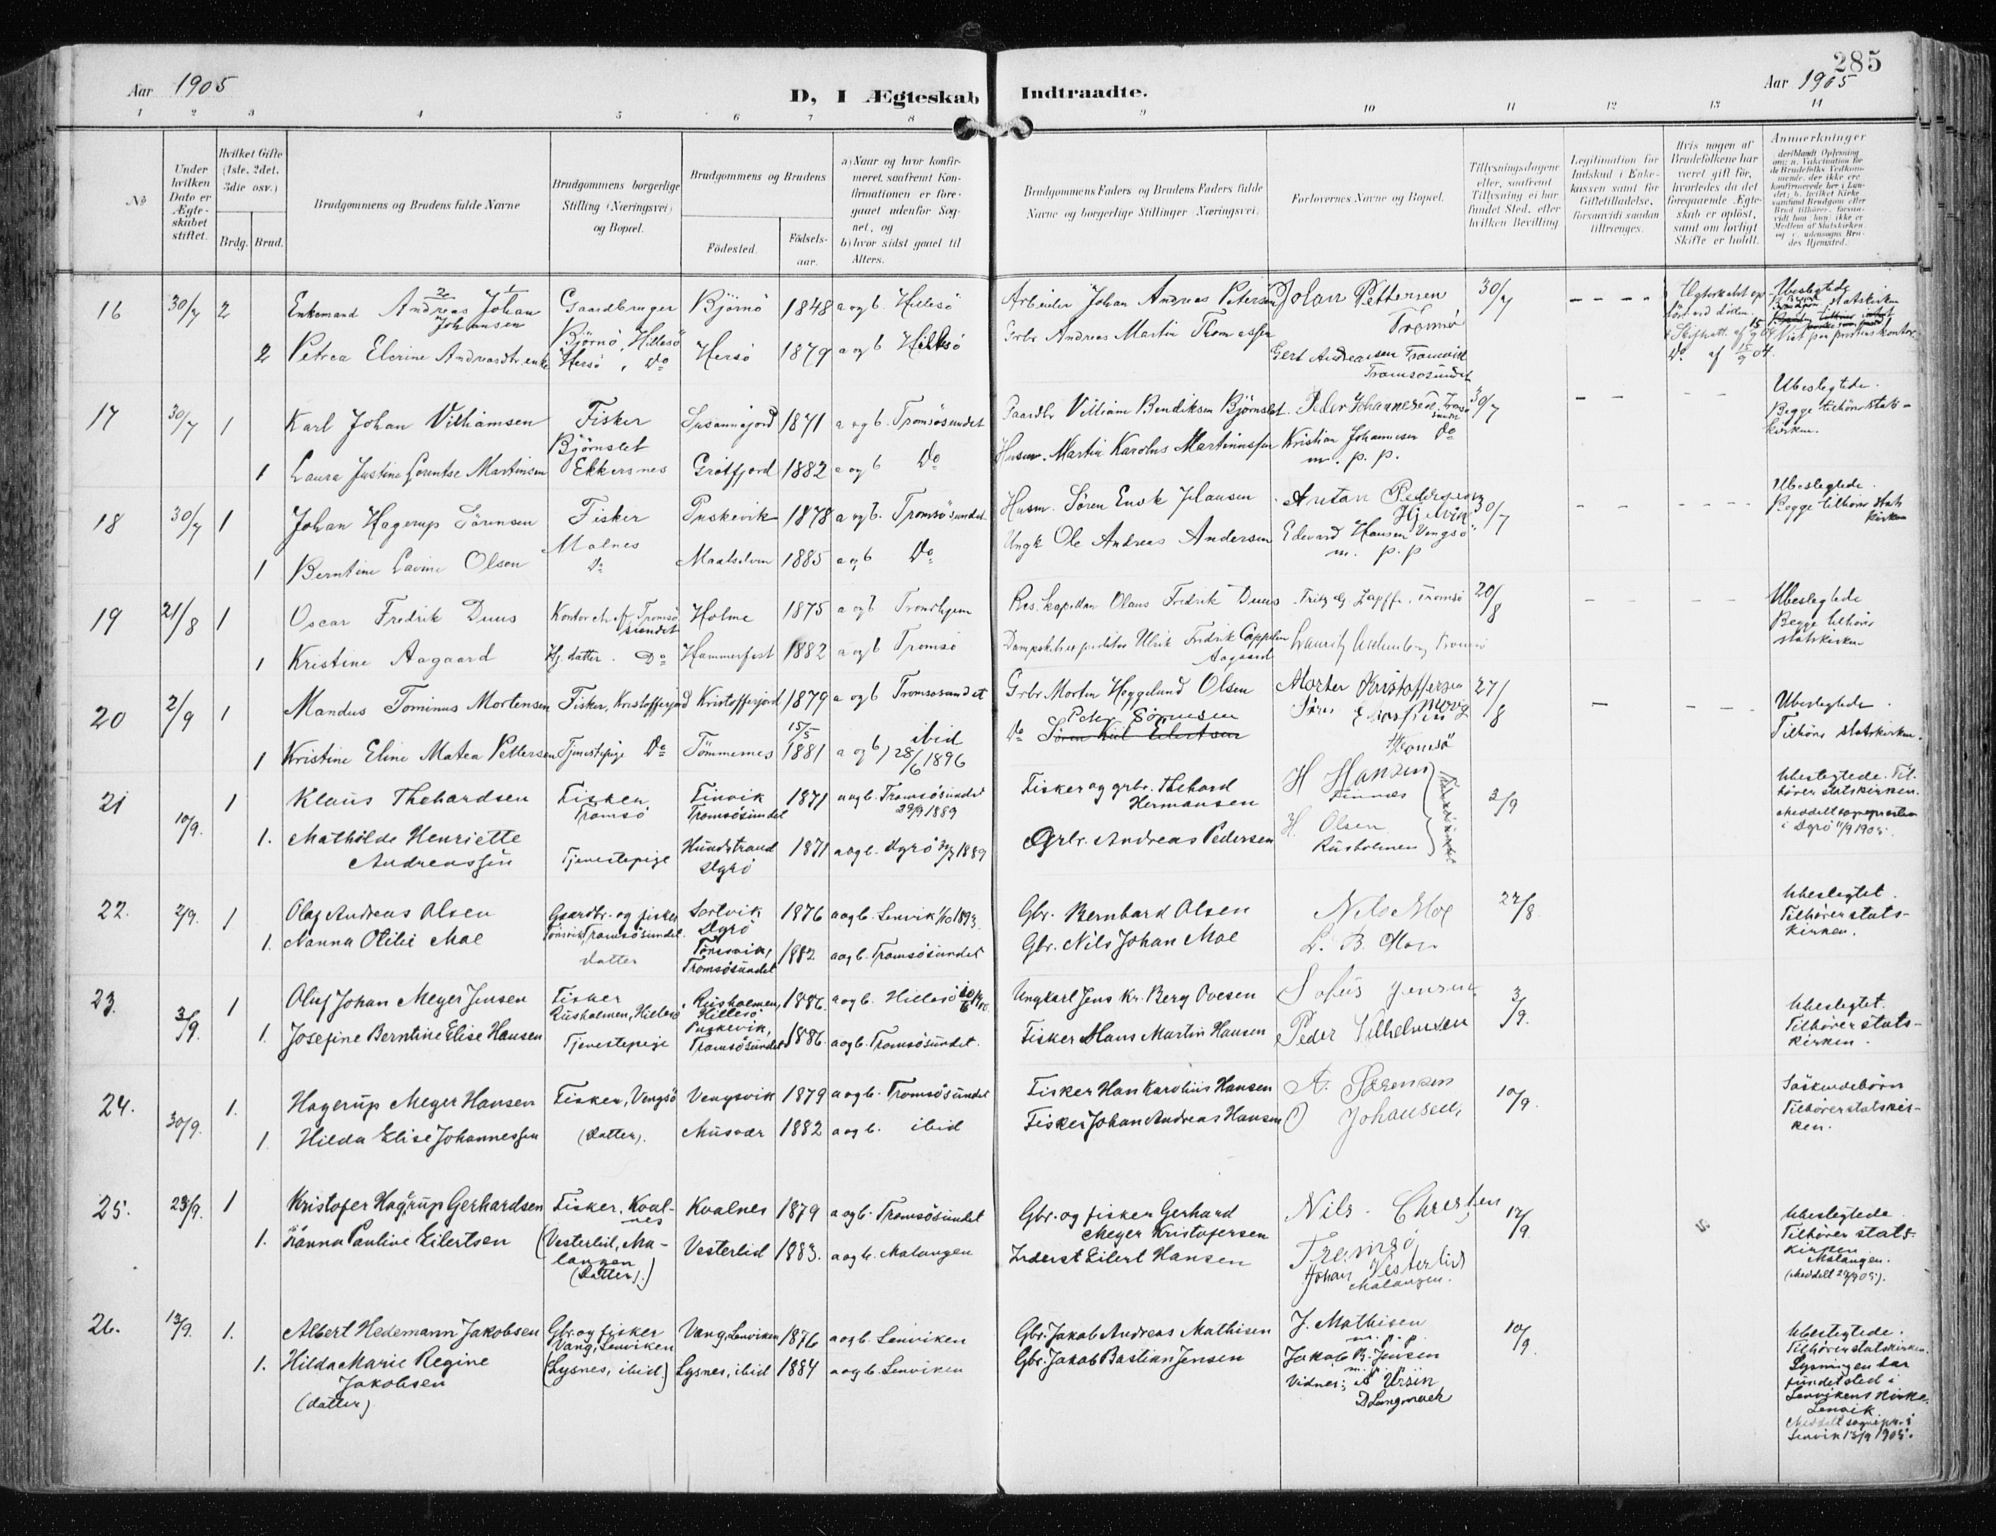 285
Aar 1905
D, I Ægteskab Indtraadte.
Aar 1905
1 2 3 4 5 6 7 8 9 10 11 12 13 14
No
Under hvilken Dato er Ægteskabet stiftet.
Hvilket Gifte (1ste, 2det, 3die osv.)
Brdg. Brud.
Brudgommens og Brudens fulde Navne
Brudgommens borgerlige Stilling (Næringsvei) og Bopæl.
Brudgommens og Brudens
Fødested. Fødselsaar.
a) Naar og hvor konfirmeret, saafremt Konfirmationen er foregaaet udenfor Sognet, og
b) hvor sidst gaaet til Alters.
Brudgommens Faders og Brudens Faders fulde Navne og borgerlige Stillinger Næringsvei.
Forlovernes Navne og Bopæl.
Tillysningsdagene eller, saafremt Tillysning ei har fundet Sted, efter hvilken Bevilling
Legitimation for Indskud i Enkekassen samt for Giftetilladelse, forsaavidt saadan tiltrænges.
Hvis nogen af Brudefolkene har været gift før, hvorledes da det foregaaende Ægteskab er opløst, samt om lovligt Skifte er holdt.
Anmærkninger
16 30/7 2 Enkemand Andreas Johan Johansen Gaardbruger Bjørnø, Hillesö Bjørnö 1848 a og b Hillesö Arbeider Johan Andreas Petersen Johan Pettersen Tromsø 30/7 Ubeslegtede
2 Petrea Elerine Andreasdtr. enke Hersö, Do Hersö 1879 a og b Hillesö Grbr Andreas Martin Thomassen Gert Andreassen Tromvik Tromsøsundet
17 30/7 1 Karl Johan Vilhamsen Fisker Bjørnslet Susannajord 1871 a og b. Tromsøsundet Gaardbr Villiam Bendiksen Bjørnslet Peder Johannesen 30/7 Ubeslegtede. Begge tilhøre statskirken.
1 Laura Justine Lorentse Martinsen Ekkersnes Grötfjord 1882 a og b Do Husm. Martin Karolus Martinussen Kristian Johannesen Do m. p. p.
18 30/7 1 Johan Hagerup Sørensen Fisker Malnes Puskevik 1878 a og b. Tromsøsundet Husm. Søren Enok Hansen Anton Pedersen 30/7 Ubeslegtede. Begge tilhøre statskirken
1 Berntine Lavine Olsen Do Maalselven 1885 a og b Do Ungk Ole Andreas Andersen Edevard Hansen Vengsö m. p. p
19 21/8 1 Oscar Fredrik Duus Kontorchef, Tromsøsundet Holme 1875 a og b Trondhjem Res. kapellan Olaus Fredrik Duus Fritz G Zapffe. Tromsø 20/8 Ubeslegtede Begge tilhøre statskirken
1 Kristine Aagaard Hj. datter. Do Hammerfest 1882 a og b Tromsø Dampskibsexpeditör Ulrik Fredrik Cappelen Aagaard
20 2/9 1 Mandus Tominus Mortensen Fisker, Kristofferjord Kristofferjord 1879 a og b Tromsøsundet Grbr Morten Heggelund Olsen Morten Kristoffersen 27/8 Ubeslegtede. Tilhøre statskirken.
1 Kristine Eline Matea Pettersen Tjenestepige Do Tömmernes 15/5 1881 a og b) ibid 28/6 1896 Do Peter Sørensen Tromsø
21 10/9. 1 Klaus Thehardsen Fisker, Tromsø Finvik Tromsøsundet 1871 a og b. Tromsøsundet 29/9 1889 Fisker og grbr. Thehard Hermansen H Hansen Finnes 3/9 Ubeslegtede. Tilhører statskirken. Meddelt sognepresten i Dyrø 11/9 1905.
1. Mathilde Henriette Andreassen Tjenestepige Hundstrand Dyrö 1871 a og b. Dyrö 1889 Grbr. Andreas Pedersen H. Olsen Risholmen
22. 2/9. 1 Olaf Andreas Olsen Gaardbr. og fisker Tönsvik, Tromsøsundet Sørtvik Dyrö 1876 a og b. Lenvik 1/10 1893. Gbr. Bernhard Olsen Nils Moe 27/8 Ubeslegtet. Tilhører statskirken.
1. Nanna Otilie Moe datter Tönsvik, Tromsøsundet 1882 a og b. Tromsøsundet Gbr. Nils Johan Moe L. B. Moe
23. 3/9. 1 Oluf Johan Meyer Jensen Fisker Risholmen, Hillesø Risholmen, Hillesö 1886 a og b. Hillesö Ungkarl Jens Kr. Berg Ovesen Sofus Jensen 3/9. Ubeslegtet. Tilhører statskirken.
1. Josefine Berntine Elise Hansen Tjenestepige Puskevik, Tromsøsundet 1886. a og b. Tromsøsundet. Fisker Hans Martin Hansen Peder Vilhelmsen
24. 30/9. 1. Hagerup Meyer Hansen Fisker, Vengsø Vengsvik 1879 a og b. Tromsøsundet Fisker Han Karolius Hansen A. Sørensen 10/9. Søskendebörn Tilhører statskirken.
1. Hilda Elise Johannessen (datter). Musvær 1882 a og b. ibid Fisker Johan Andreas Hansen O Johansen,
25. 23/9. 1 Kristofer Hagerup Gerhardsen Fisker, Kvalnes Kvalnes 1879 a og b. Tromsøsundet Gbr. og fisker Gerhard Meyer Kristofersen Nils Christen Tromsø 17/9. Ubeslegtede. Tilhører statskirken Malangen. (Meddelt 27/9 05).
1. Hanna Pauline Eilertsen (Vesterlid, Malangen (datter).) Vesterlid 1883. a og b. Malangen Inderst Eilert Hansen Johan Vesterlid Malangen.
26. 13/9. 1. Albert Hedemann Jakobsen Gbr. og fisker Vang, Lenviken Vang, Lenviken 1876 a og b. Lenviken Gbr. Jakob Andreas Mathisen J. Mathisen m. p. p. 10/9. Ubeslegtede. Tilhører statskirken. Lysningen har fundet sted i Lenvikens kirke, Lenvik Meddelt sognepr. i Lenvik 13/9 1905.
1. Hilda Marie Regine Jakobsen (datter) (Lysnes, ibid.) Lysnes, ibid 1884 a og b. Lenviken Gbr. Jakob Bastian Jensen Jakob B. Jensen m. p. p Vidner: A Ursin D Langmach